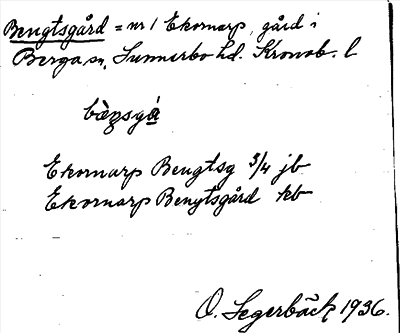 Bengtsgård = nr 1 Ekornarp, gård i
Berga sn, Sunnerbo hd. Kronob. l
bèŋsgå
Ekornarp Bengtsg 3/4 jb
Ekornarp Bengtsgård kb
O. Segerbäck 1936.